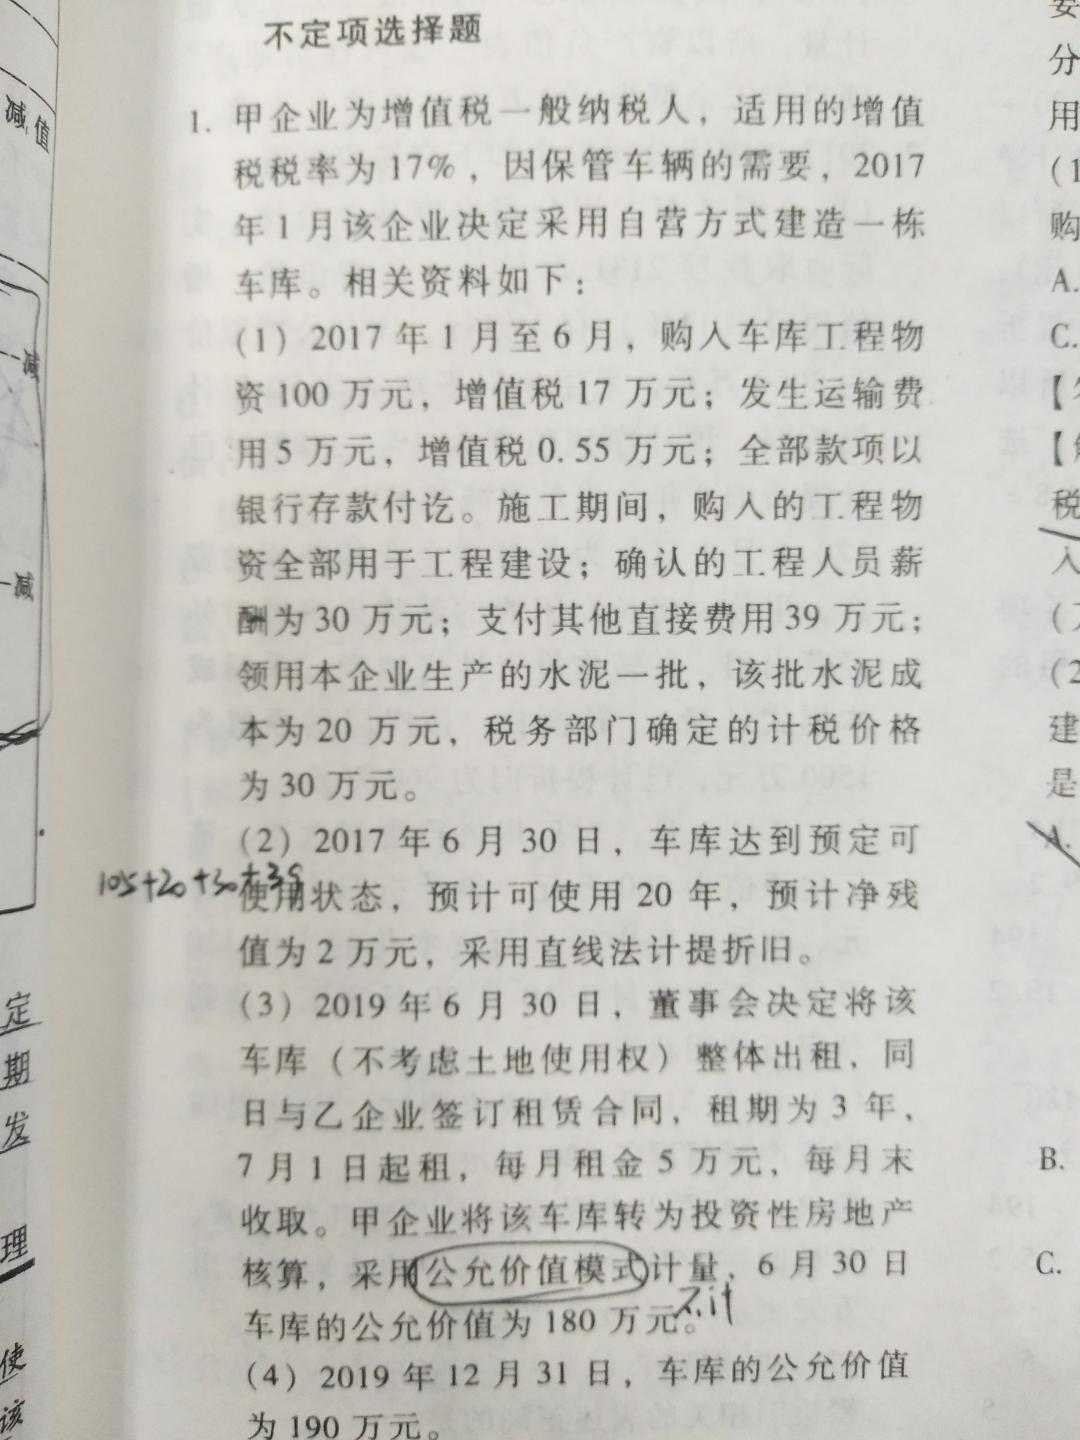 不定项选择题
1. 甲企业为增值税一般纳税人，适用的增值
税税率为17%，因保管车辆的需要，2017
年1月该企业决定采用自营方式建造一栋
车库。相关资料如下：
(1) 2017年1月至6月，购入车库工程物
资100万元，增值税17万元；发生运输费
用5万元，增值税0.55万元；全部款项以
银行存款付讫。施工期间，购入的工程物
资全部用于工程建设；确认的工程人员薪
酬为30万元；支付其他直接费用39万元；
领用本企业生产的水泥一批，该批水泥成
本为20万元，税务部门确定的计税价格
为30万元。
(2) 2017年6月30日，车库达到预定可
105+20+30+39
使用状态，预计可使用20年，预计净残
值为2万元，采用直线法计提折旧。
(3) 2019年6月30日，董事会决定将该
车库（不考虑土地使用权）整体出租，同
日与乙企业签订租赁合同，租期为3年，
7月1日起租，每月租金5万元，每月末
收取。甲企业将该车库转为投资性房地产
核算，采用公允价值模式计量，6月30日
车库的公允价值为180万元。
不计
(4) 2019年12月31日，车库的公允价值
为190万元。
减值
减
减
定
期
发
理
使
该
安
分
用
(1
购
A.
C.
税
入
(2
建
是
A.
B.
C.